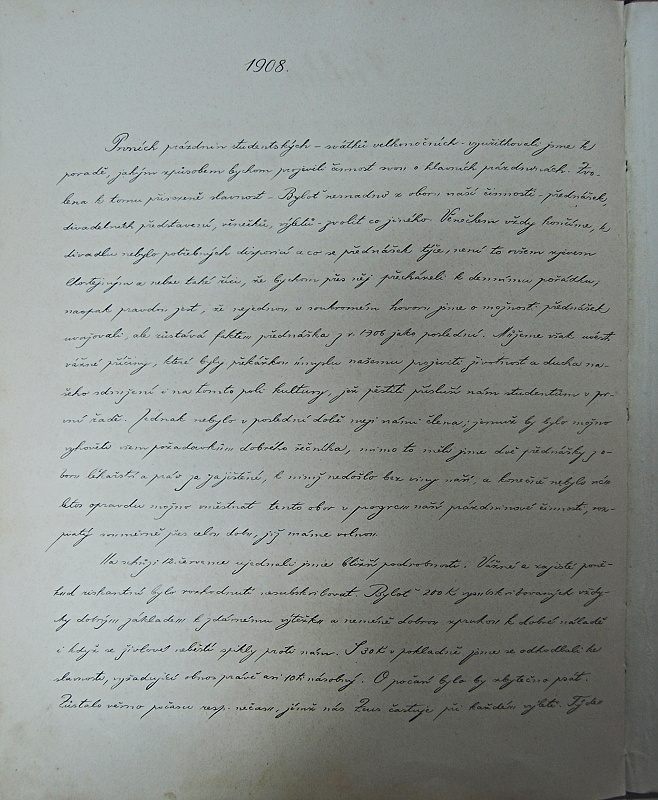 1908.
Prvních prázdnin studentských - svátků velkonočních - využitkovali jsme k
poradě, jakým způsobem bychom projevili činnost svou o hlavních prázdninách. Zvo-
lena k tomu přírodně slavnost. - Byloť nesnadno z oboru naší činnosti - přednášek,
divadelních představení, věnečků, výletů - zvolit co jiného. Věnečkem vždy končíme, k
divadlu nebylo potřebných disposicí a co se přednášek týče, není to ovšem zjevem
lhostejným a nelze také říci, že bychom přes něj přecházeli k dennímu pořádku,
naopak pravdou jest, že nejednou v soukromém hovoru jsme o možnosti přednášek
uvažovali, ale zůstává faktem přednáška z r. 1906 jako poslední. Můžeme však uvést
vážné příčiny, které byly překážkou úmyslu našemu projeviti životnost a ducha na-
šeho sdružení i na tomto poli kultury, jež pěstiti přísluší nám studentům v pr-
vní řadě. Jednak nebylo v poslední době mezi námi člena, jemuž by bylo možno
vyhověti všem požadavkům dobrého řečníka, mimo to měli jsme dvě přednášky z o-
boru lékařství a práv již zajištěné, k nimž nedošlo bez viny naší, a konečně nebylo nám
letos opravdu možno vměstnat tento obor v program naší prázdninové činnosti, roz-
pjatý souměrně přes celou dobu, jíž máme volnou.
Na schůzi 12. července ujednali jsme bližší podrobnosti. Vážně a zajisté poně-
kud riskantně bylo rozhodnuto nesubskribovat. Byloť 200 K upsubskribovaných vždy-
cky dobrým základem k zdárnému výtěžku a neméně dobrou vzpruhou k dobré náladě
i když se živlové nebeští spikly proti nám. S 30 K v pokladně jsme se odhodlali ke
slavnosti, vyžadující obnos právě asi 10 k násobný. O počasí bylo by zbytečno psát.
Zůstalo věrno počasu resp. nečasu, jímž nás Zeus častuje při každém výletě. Týden